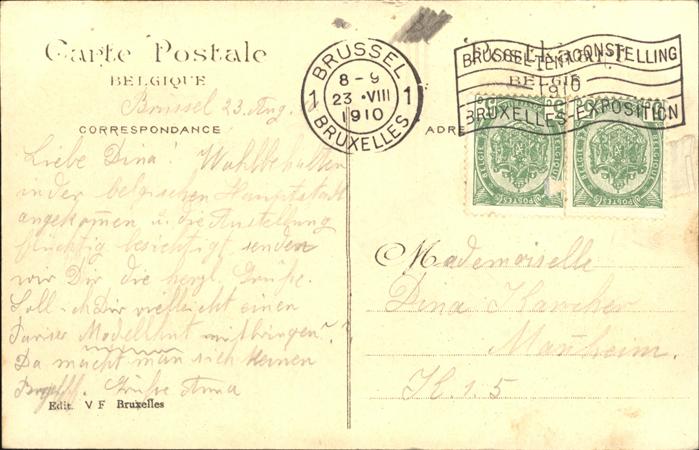 Carte Postale
BELGIQUE
Brüssel 23. Aug.
CORRESPONDANCE
Liebe Dina! Wohlbehalten
in der belgischen Hauptstadt
angekom̄en u. die Austellung
flüchtig besichtigt senden
wir Dir die herzl. Grüße.
Soll ich Dir vielleicht einen
Pariser Modellhut mitbringen??
Da macht man sich keinen
Grüße Anna
Edit. V F Bruxelles
BRUSSEL
8-9
1 23 • VIII 1
1910
BRUXELLES
BRUSSEL TENTOONSTELLING
1910
BRUXELLES-EXPOSITION
BELGIË
ADRE
POSTES POSTES
Mademoiselle
Dina Karcher
Man̄heim.
K. 1. 5